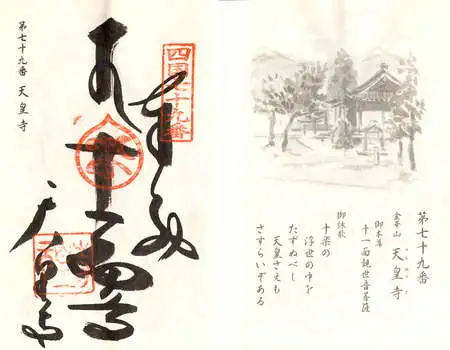 第七十九番
金華山 天皇寺
御本尊
十一面観世音菩薩
御詠歌
十楽の
浮世の中を
たずぬべし
天皇さえも
さすらいぞある
奉納
天皇寺
第七十九番 天皇寺